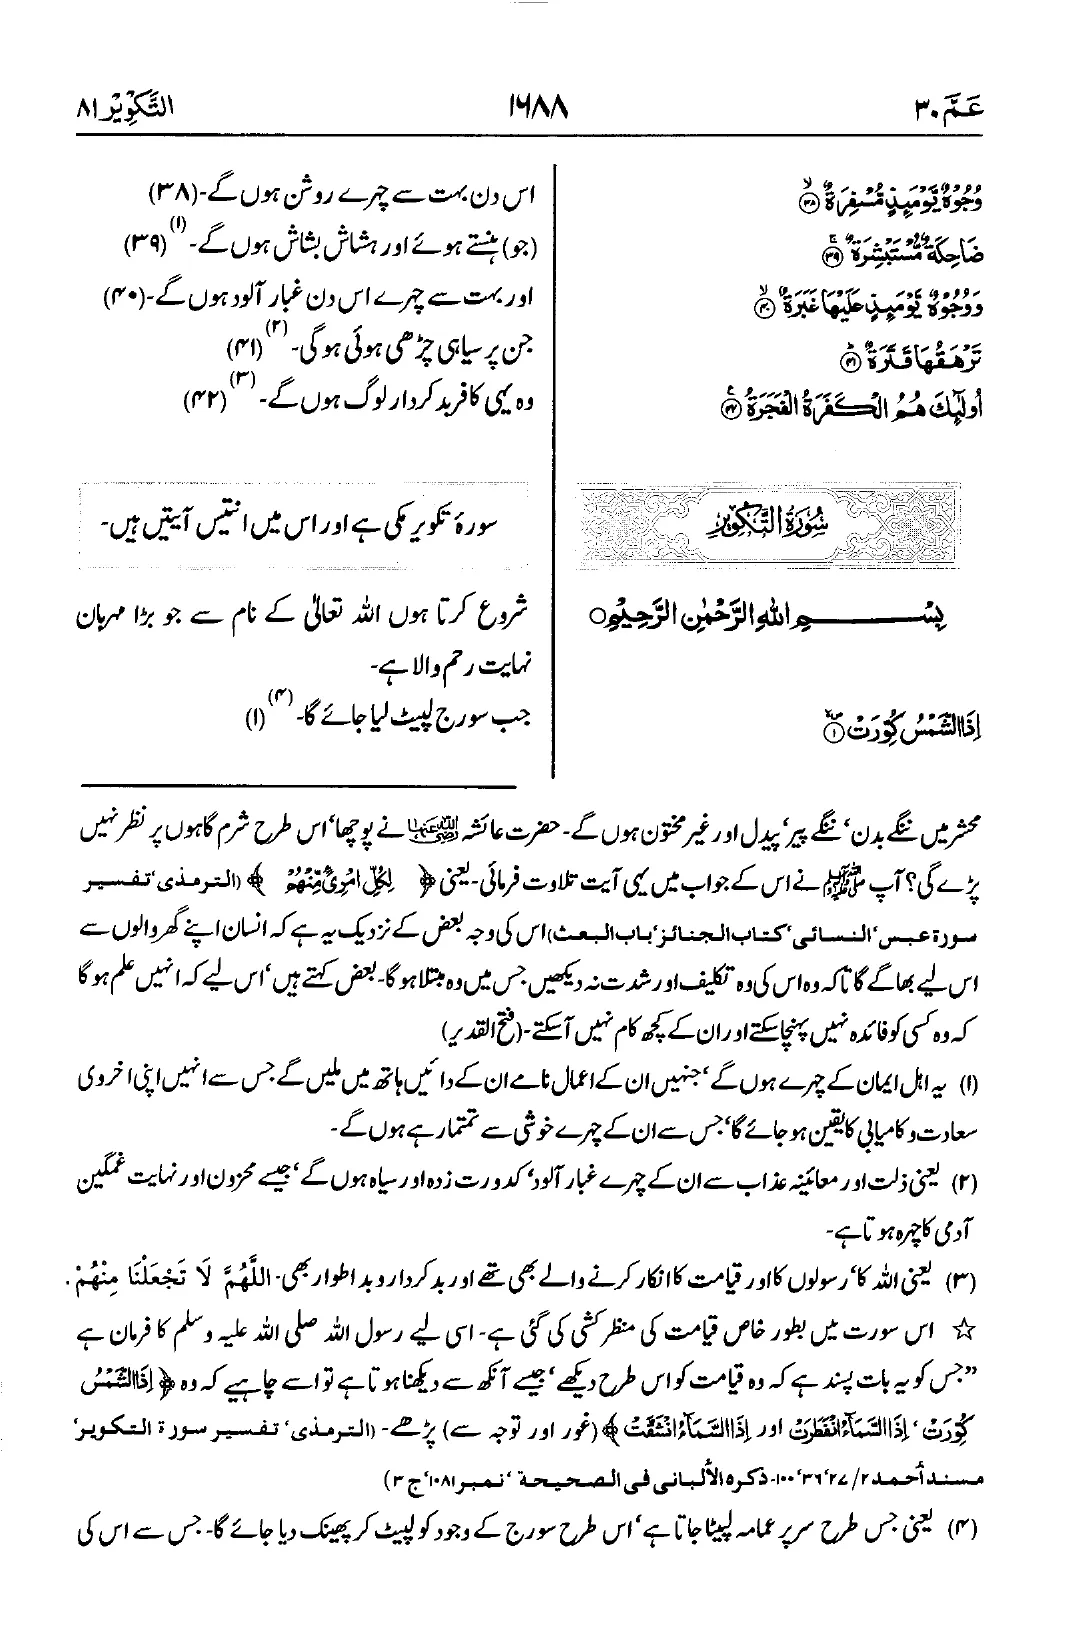 عَمَّ ۳۰
۱۶۸۸
التَّكْوِيْر ۸۱
وُجُوْهٌ يَّوْمَىِٕذٍ مُّسْفِرَةٌ ۙ۳۸
اس دن بہت سے چہرے روشن ہوں گے۔ (۳۸)
ضَاحِكَةٌ مُّسْتَبْشِرَةٌ ۚ۳۹
(جو) ہنستے ہوئے اور ہشاش بشاش ہوں گے۔ (۱) (۳۹)
وَوُجُوْهٌ يَّوْمَىِٕذٍ عَلَيْهَا غَبَرَةٌ ۙ۴۰
اور بہت سے چہرے اس دن غبار آلود ہوں گے۔ (۴۰)
تَرْهَقُهَا قَتَرَةٌ ؕ۴۱
جن پر سیاہی چڑھی ہوئی ہوگی۔ (۲) (۴۱)
اُولٰٓىِٕكَ هُمُ الْكَفَرَةُ الْفَجَرَةُ ۴۲
وہ یہی کافر بدکردار لوگ ہوں گے۔ (۳) (۴۲)
سُوْرَةُ التَّكْوِيْر
سورۂ تکویر مکی ہے اور اس میں انتیس آیتیں ہیں۔
بِسْـــــــــمِ اللّٰهِ الرَّحْمٰنِ الرَّحِيْمِ ○
شروع کرتا ہوں اللہ تعالیٰ کے نام سے جو بڑا مہربان
نہایت رحم والا ہے۔
اِذَا الشَّمْسُ كُوِّرَتْ ۱
جب سورج لپیٹ لیا جائے گا۔ (۴) (۱)
محشر میں ننگے بدن، ننگے پیر، پیدل اور غیر مختون ہوں گے۔ حضرت عائشہ رضی اللہ عنہا نے پوچھا، اس طرح شرم گاہوں پر نظر نہیں
پڑے گی؟ آپ ﷺ نے اس کے جواب میں یہی آیت تلاوت فرمائی۔ یعنی ﴿ لِكُلِّ امْرِئٍ مِّنْهُمْ ﴾ (الترمذی، تفسیر
سورۃ عبس، النسائی، کتاب الجنائز، باب البعث) اس کی وجہ بعض کے نزدیک یہ ہے کہ انسان اپنے گھر والوں سے
اس لیے بھاگے گا تاکہ وہ اس کی وہ تکلیف اور شدت نہ دیکھیں جس میں وہ مبتلا ہوگا۔ بعض کہتے ہیں، اس لیے کہ انہیں علم ہوگا
کہ وہ کسی کو فائدہ نہیں پہنچا سکتے اور ان کے کچھ کام نہیں آسکتے۔ (فتح القدیر)
(۱) یہ اہل ایمان کے چہرے ہوں گے، جنہیں ان کے اعمال نامے ان کے دائیں ہاتھ میں ملیں گے جس سے انہیں اپنی اخروی
سعادت و کامیابی کا یقین ہو جائے گا، جس سے ان کے چہرے خوشی سے تمتما رہے ہوں گے۔
(۲) یعنی ذلت اور معائنہ عذاب سے ان کے چہرے غبار آلود، کدورت زدہ اور سیاہ ہوں گے، جیسے محزون اور نہایت غمگین
آدمی کا چہرہ ہوتا ہے۔
(۳) یعنی اللہ کا، رسولوں کا اور قیامت کا انکار کرنے والے بھی تھے اور بدکردار و بداطوار بھی۔ اللَّهُمَّ لَا تَجْعَلْنَا مِنْهُمْ.
☆ اس سورت میں بطور خاص قیامت کی منظر کشی کی گئی ہے۔ اسی لیے رسول اللہ صلی اللہ علیہ وسلم کا فرمان ہے
”جس کو یہ بات پسند ہے کہ وہ قیامت کو اس طرح دیکھے، جیسے آنکھ سے دیکھنا ہوتا ہے تو اسے چاہیے کہ وہ ﴿ اِذَا الشَّمْسُ
كُوِّرَتْ، اِذَا السَّمَآءُ انْفَطَرَتْ اور اِذَا السَّمَآءُ انْشَقَّتْ ﴾ (غور اور توجہ سے) پڑھے۔ (الترمذی، تفسیر سورۃ التکویر،
مسند أحمد ۲/ ۲۷، ۳۶، ۱۰۰۔ ذکرہ الألبانی فی الصحیحۃ، نمبر ۱۰۸۱، ج ۳)
(۴) یعنی جس طرح سر پر عمامہ لپیٹا جاتا ہے، اس طرح سورج کے وجود کو لپیٹ کر پھینک دیا جائے گا۔ جس سے اس کی